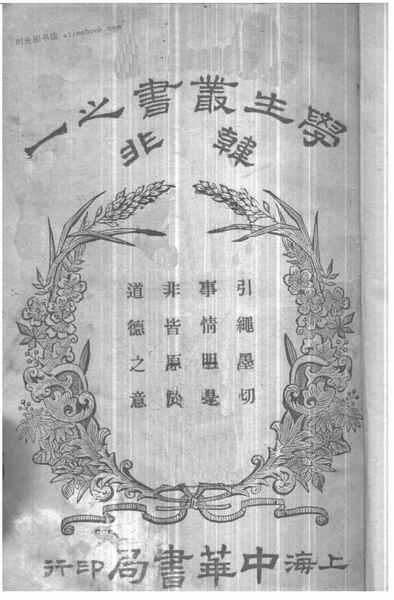 时光图书馆 alimebook.com
學生叢書之一
韓非
引繩墨切
事情明是
非皆原於
道德之意
上海中華書局印行